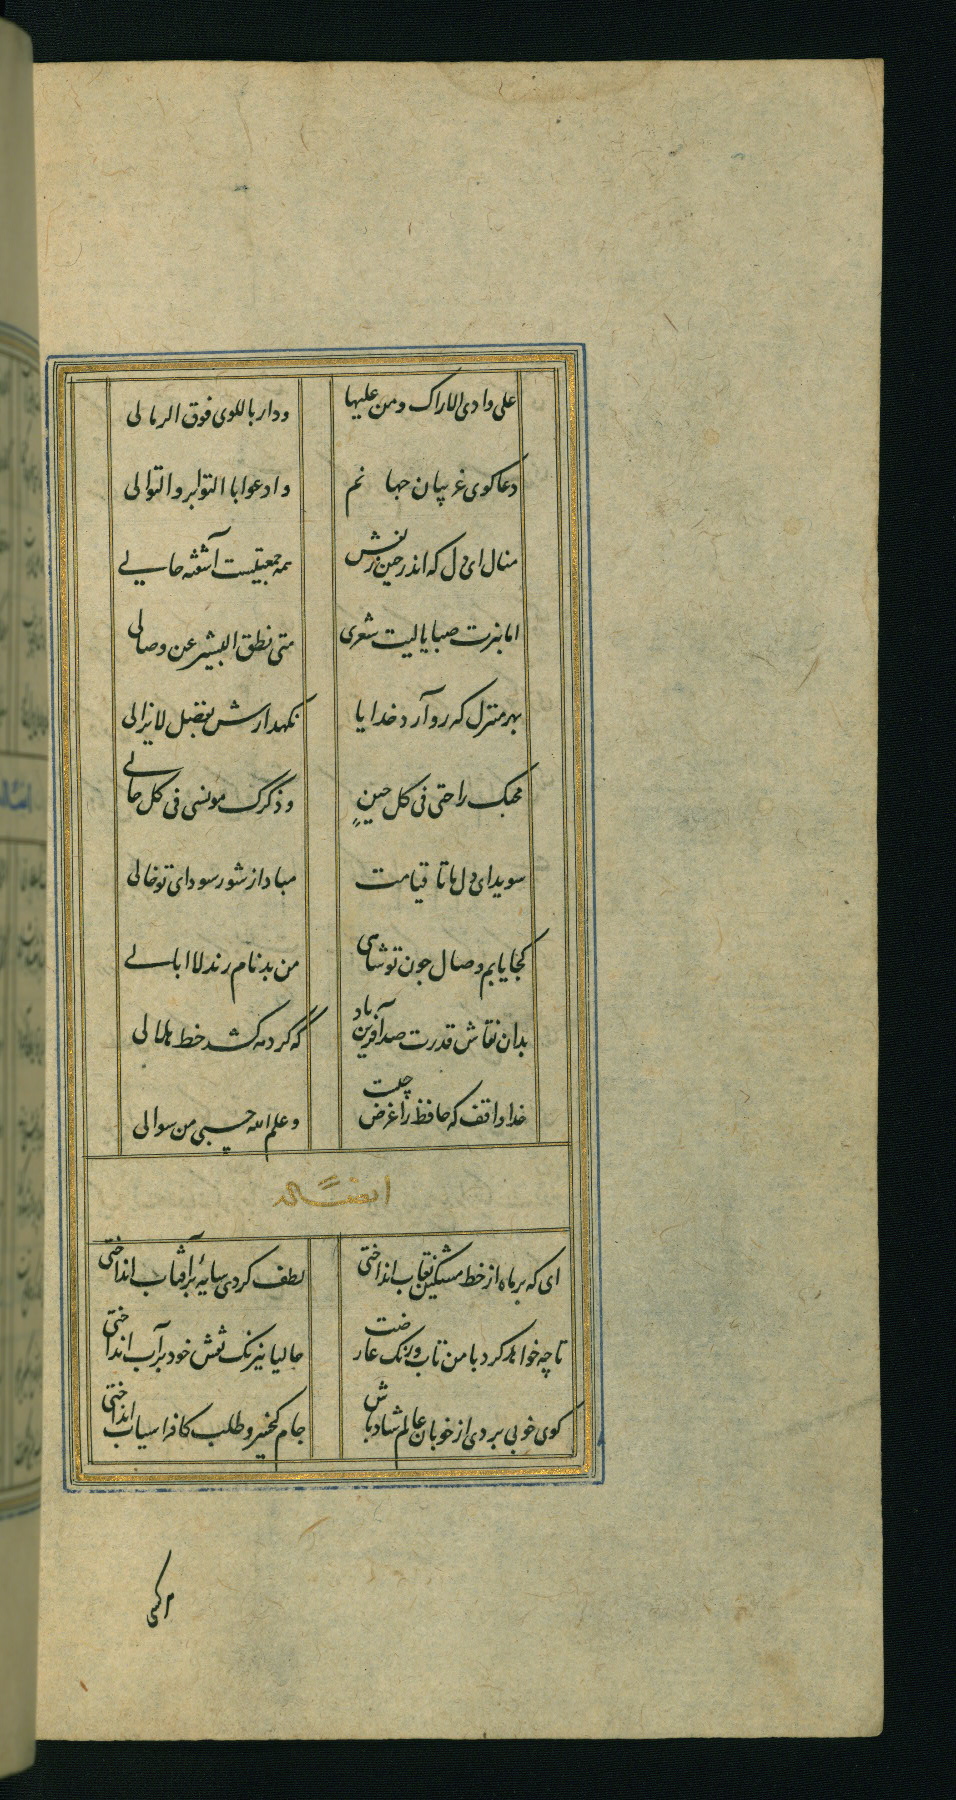 علی وادی الاراک ومن علیها
ودار باللوی فوق الرمالی
دعاکوی غریبان جهانم
وادعوا باالتواتر والتوالی
منال ای دل که اندر حین زلفش
همه جمعیتست آشفته حالی
امابنرت صبا یالیت شعری
متی نطق البشیر عن وصالی
بهر منزل که رو آرد خدایا
نکهدارش بفضل لایزالی
محبک راحتی فی کل حین
وذکرک مونسی فی کل حالی
سویدای دلها تا قیامت
مباد از شور سودای تو خالی
کجا یابم وصال جون تو شاهی
من بدنام رند لاابالی
بدان نقاش قدرت صد آفرین باد
که کرد مه کشد خط هلالی
خدا واقف که حافظ را غرض چیست
وعلم الله حسبی من سوالی
ایضاً له
ای که بر ماه از خط مشکین نقاب انداختی
لطف کردی سایهٔ بر آفتاب انداختی
تا چه خواهد کرد با من تاب ورنک عارضت
حالیا نیرنک نقش خود بر آب انداختی
کوی خوبی بردی از خوبان عالم شاد باش
جام کیخسرو طلب کافراسیاب انداختی
هرکسی